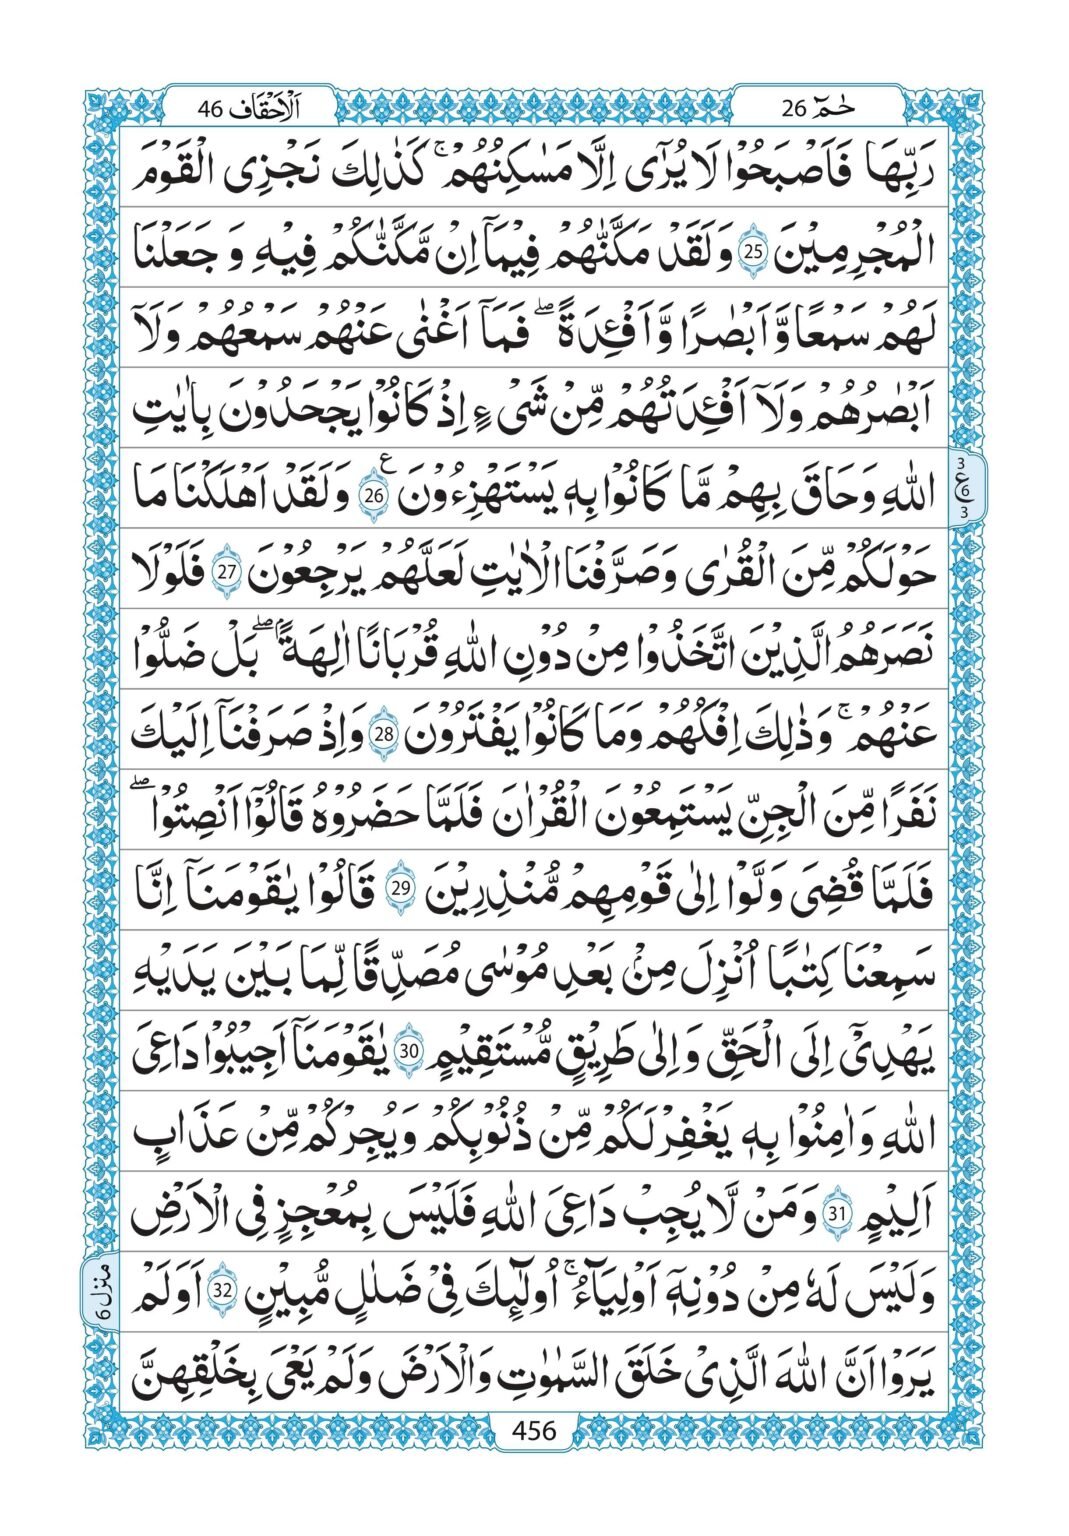 حٰمٓ 26
اَلْاَحْقَاف 46
رَبِّهَا فَاَصْبَحُوْا لَا يُرٰٓى اِلَّا مَسٰكِنُهُمْ ۚ كَذٰلِكَ نَجْزِى الْقَوْمَ
الْمُجْرِمِيْنَ 25 وَلَقَدْ مَكَّنّٰهُمْ فِيْمَاۤ اِنْ مَّكَّنّٰكُمْ فِيْهِ وَ جَعَلْنَا
لَهُمْ سَمْعًا وَّ اَبْصٰرًا وَّ اَفْـِٕدَةً ۖ فَمَاۤ اَغْنٰى عَنْهُمْ سَمْعُهُمْ وَلَاۤ
اَبْصٰرُهُمْ وَلَاۤ اَفْـِٕدَتُهُمْ مِّنْ شَىْءٍ اِذْ كَانُوْا يَجْحَدُوْنَ بِاٰيٰتِ
اللّٰهِ وَحَاقَ بِهِمْ مَّا كَانُوْا بِهٖ يَسْتَهْزِءُوْنَ 26 ع وَلَقَدْ اَهْلَكْنَا مَا
3 ع 6 3
حَوْلَكُمْ مِّنَ الْقُرٰى وَصَرَّفْنَا الْاٰيٰتِ لَعَلَّهُمْ يَرْجِعُوْنَ 27 فَلَوْلَا
نَصَرَهُمُ الَّذِيْنَ اتَّخَذُوْا مِنْ دُوْنِ اللّٰهِ قُرْبَانًا اٰلِهَةً ۖ بَلْ ضَلُّوْا
عَنْهُمْ ۚ وَذٰلِكَ اِفْكُهُمْ وَمَا كَانُوْا يَفْتَرُوْنَ 28 وَاِذْ صَرَفْنَاۤ اِلَيْكَ
نَفَرًا مِّنَ الْجِنِّ يَسْتَمِعُوْنَ الْقُرْاٰنَ فَلَمَّا حَضَرُوْهُ قَالُوْۤا اَنْصِتُوْا ۖ
فَلَمَّا قُضِىَ وَلَّوْا اِلٰى قَوْمِهِمْ مُّنْذِرِيْنَ 29 قَالُوْا يٰقَوْمَنَاۤ اِنَّا
سَمِعْنَا كِتٰبًا اُنْزِلَ مِنْۢ بَعْدِ مُوْسٰى مُصَدِّقًا لِّمَا بَيْنَ يَدَيْهِ
يَهْدِىْۤ اِلَى الْحَقِّ وَاِلٰى طَرِيْقٍ مُّسْتَقِيْمٍ 30 يٰقَوْمَنَاۤ اَجِيْبُوْا دَاعِىَ
اللّٰهِ وَاٰمِنُوْا بِهٖ يَغْفِرْ لَكُمْ مِّنْ ذُنُوْبِكُمْ وَيُجِرْكُمْ مِّنْ عَذَابٍ
اَلِيْمٍ 31 وَمَنْ لَّا يُجِبْ دَاعِىَ اللّٰهِ فَلَيْسَ بِمُعْجِزٍ فِى الْاَرْضِ
وَلَيْسَ لَهٗ مِنْ دُوْنِهٖۤ اَوْلِيَآءُ ۚ اُولٰٓئِكَ فِىْ ضَلٰلٍ مُّبِيْنٍ 32 اَوَلَمْ
منزل 6
يَرَوْا اَنَّ اللّٰهَ الَّذِىْ خَلَقَ السَّمٰوٰتِ وَالْاَرْضَ وَلَمْ يَعْىَ بِخَلْقِهِنَّ
456